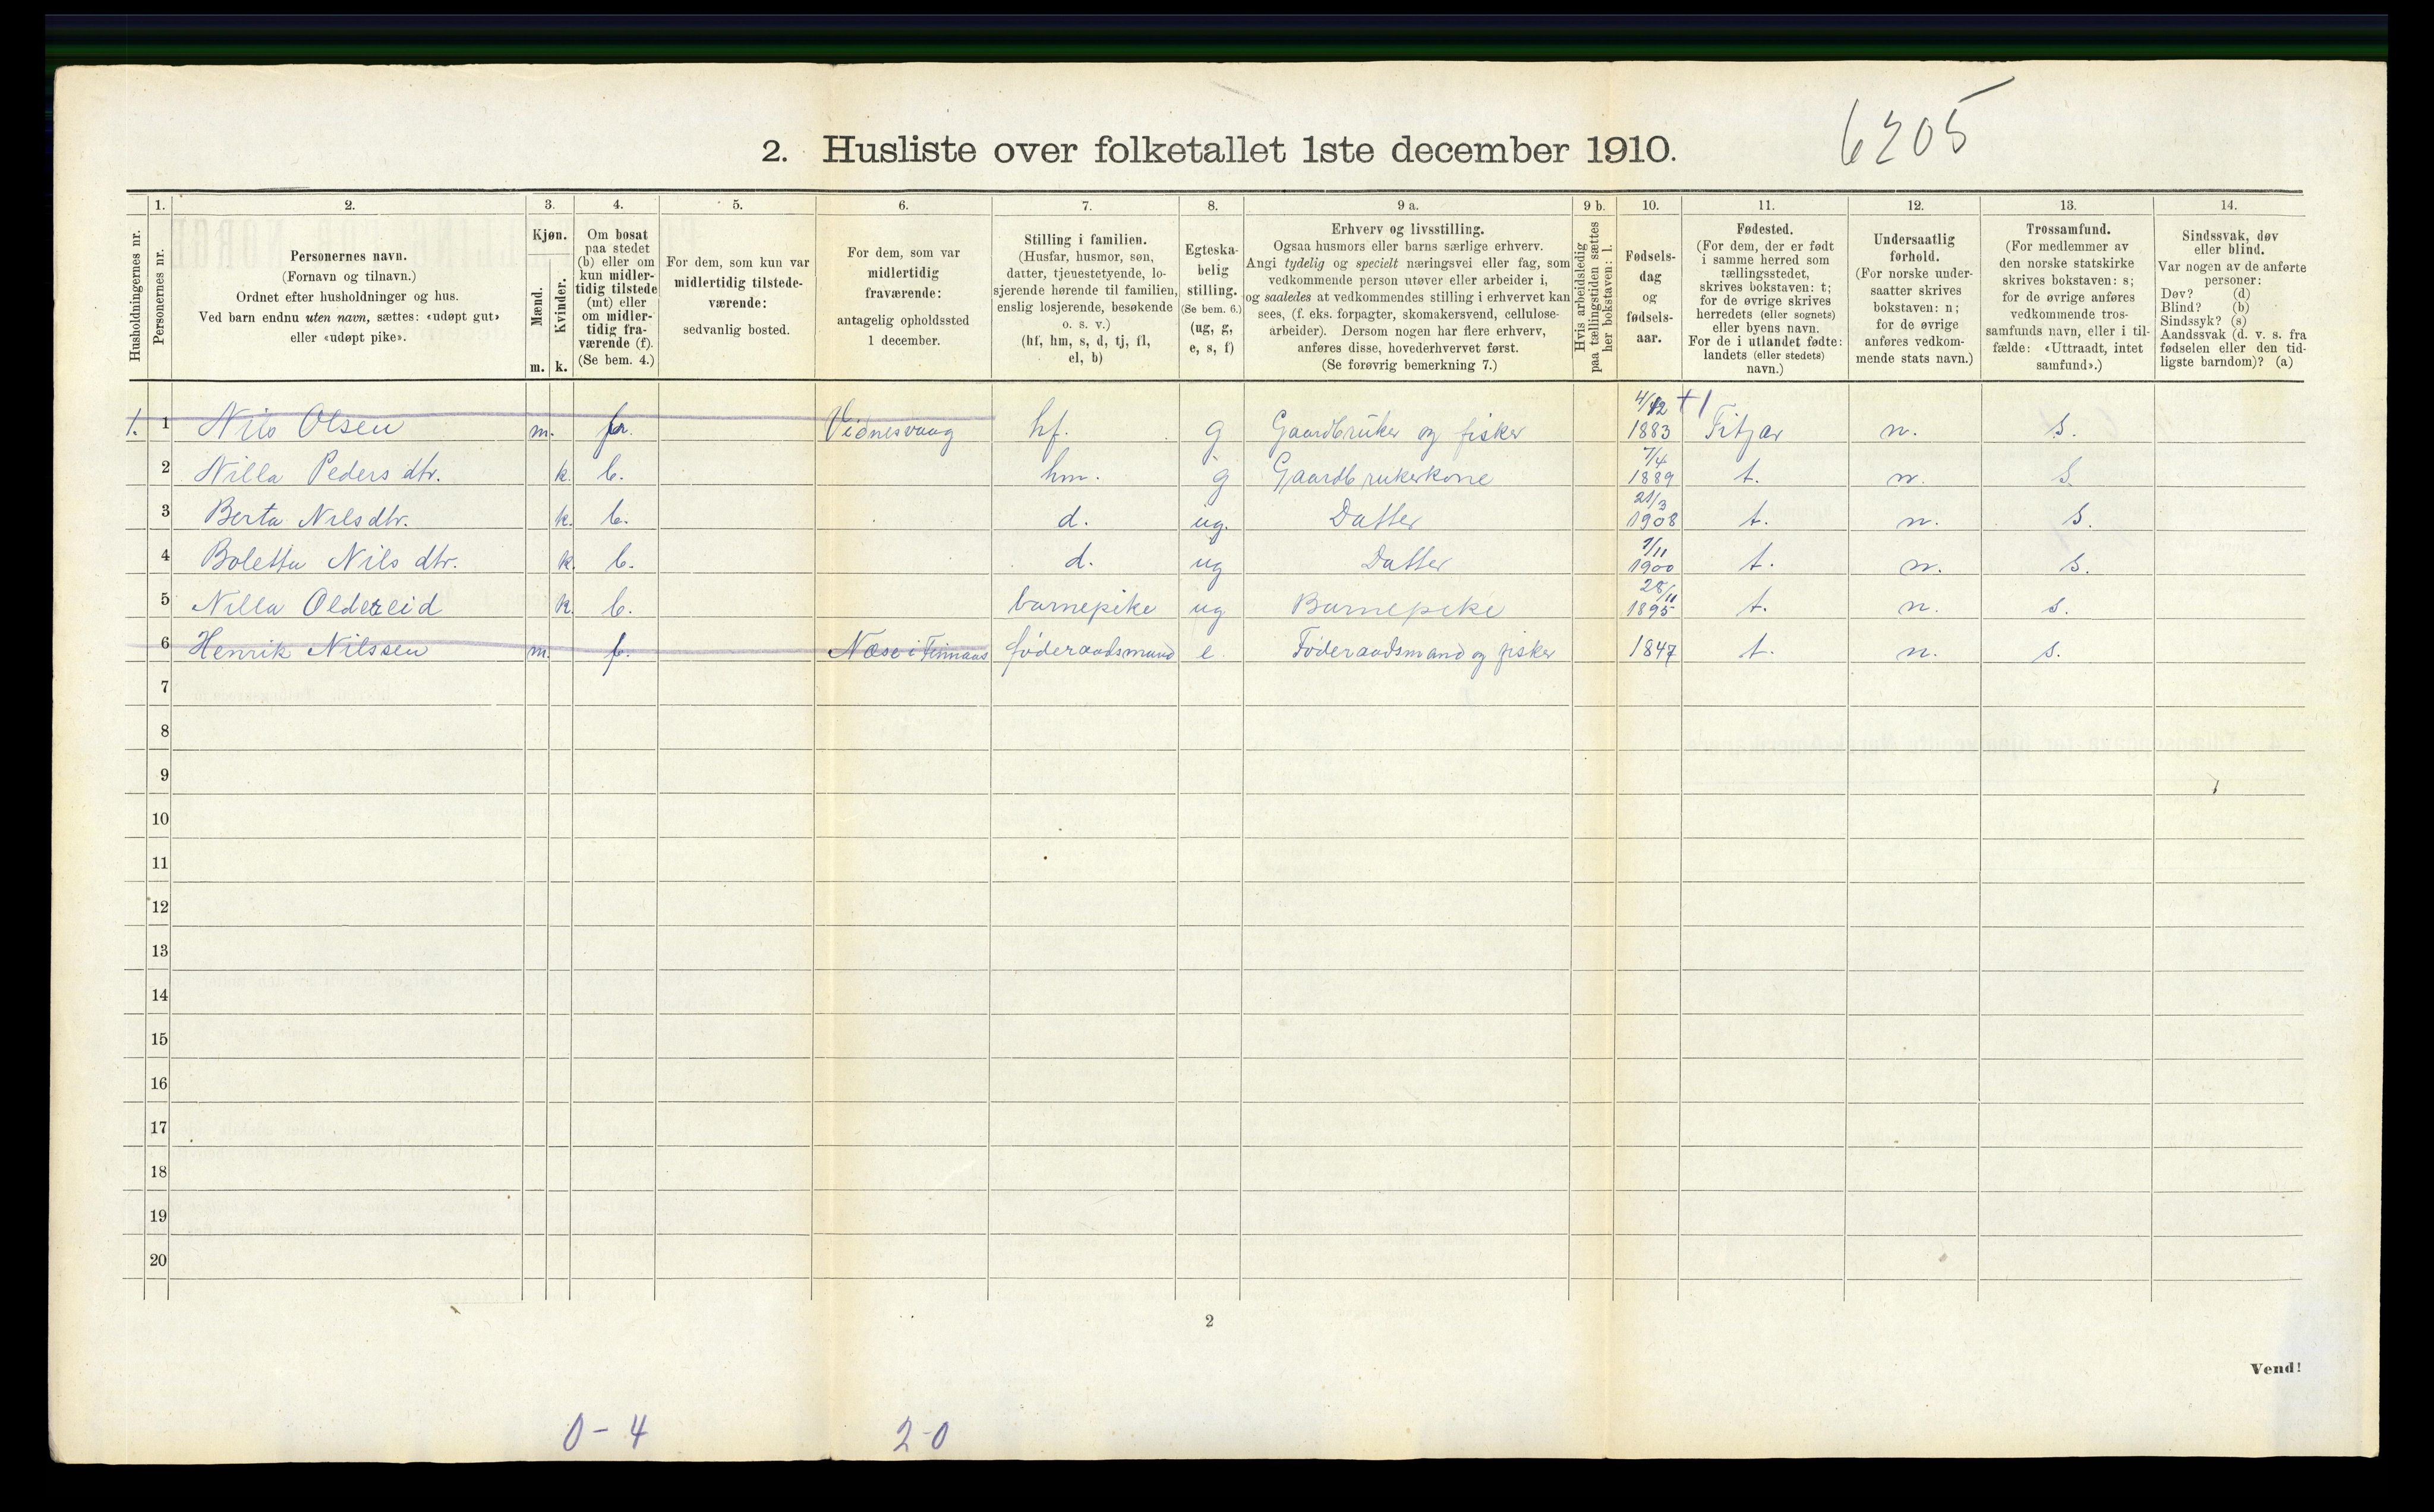 6205
2. Husliste over folketallet 1ste december 1910.
Husholdningernes nr.
1. Personernes nr.
2. Personernes navn.
(Fornavn og tilnavn.)
Ordnet efter husholdninger og hus.
Ved barn endnu uten navn, sættes: «udøpt gut»
eller «udøpt pike».
3. Kjøn.
Mænd. m.
Kvinder. k.
4. Om bosat
paa stedet
(b) eller om
kun midler-
tidig tilstede
(mt) eller
om midler-
tidig fra-
værende (f).
(Se bem. 4.)
5. For dem, som kun var
midlertidig tilstede-
værende:
sedvanlig bosted.
6. For dem, som var
midlertidig
fraværende:
antagelig opholdssted
1 december.
7. Stilling i familien.
(Husfar, husmor, søn,
datter, tjenestetyende, lo-
sjerende hørende til familien,
enslig losjerende, besøkende
o. s. v.)
(hf, hm, s, d, tj, fl,
el, b)
8. Egteska-
belig
stilling.
(Se bem. 6.)
(ug, g,
e, s, f)
9 a. Erhverv og livsstilling.
Ogsaa husmors eller barns særlige erhverv.
Angi tydelig og specielt næringsvei eller fag, som
vedkommende person utøver eller arbeider i,
og saaledes at vedkommendes stilling i erhvervet kan
sees, (f. eks. forpagter, skomakersvend, cellulose-
arbeider). Dersom nogen har flere erhverv,
anføres disse, hovederhvervet først.
(Se forøvrig bemerkning 7.)
9 b. Hvis arbeidsledig
paa tællingstiden sættes
her bokstaven: l.
10. Fødsels-
dag
og
fødsels-
aar.
11. Fødested.
(For dem, der er født
i samme herred som
tællingsstedet,
skrives bokstaven: t;
for de øvrige skrives
herredets (eller sognets)
eller byens navn.
For de i utlandet fødte:
landets (eller stedets)
navn.)
12. Undersaatlig
forhold.
(For norske under-
saatter skrives
bokstaven: n;
for de øvrige
anføres vedkom-
mende stats navn.)
13. Trossamfund.
(For medlemmer av
den norske statskirke
skrives bokstaven: s;
for de øvrige anføres
vedkommende tros-
samfunds navn, eller i til-
fælde: «Uttraadt, intet
samfund».)
14. Sindssvak, døv
eller blind.
Var nogen av de anførte
personer:
Døv? (d)
Blind? (b)
Sindssyk? (s)
Aandssvak (d. v. s. fra
fødselen eller den tid-
ligste barndom)? (a)
1. 1 Nils Olsen m. Vednesvaag hf. g Gaardbruker og fisker 4/12 1883 Fitjar n. s.
2 Nilla Peders dtr. k. b. hm. g Gaardbrukerkone 7/4 1889 t. n. s.
3 Berta Nilsdtr. k. b. d. ug. Datter 21/3 1908 t. n. s.
4 Boletta Nils dtr. k. b. d. ug Datter 1/11 1900 t. n. s.
5 Nilla Oldereid k. b. barnepike ug Barnepike 28/11 1895 t. n. s.
6 Henrik Nilssen m. f. Næse i Finnaas føderaadsmand e. Føderaadsmand og fisker 1847 t. n. s.
7
8
9
10
11
12
13
14
15
16
17
18
19
20
2
Vend!
0-4 2-0